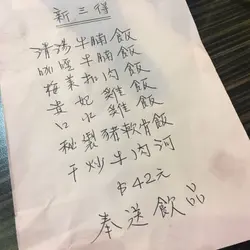 新三得
清湯牛腩飯
咖喱牛腩飯
梅菜扣肉飯
貴妃雞飯
口水雞飯
秘製豬軟骨飯
干炒牛肉河
$42元
奉送飲品